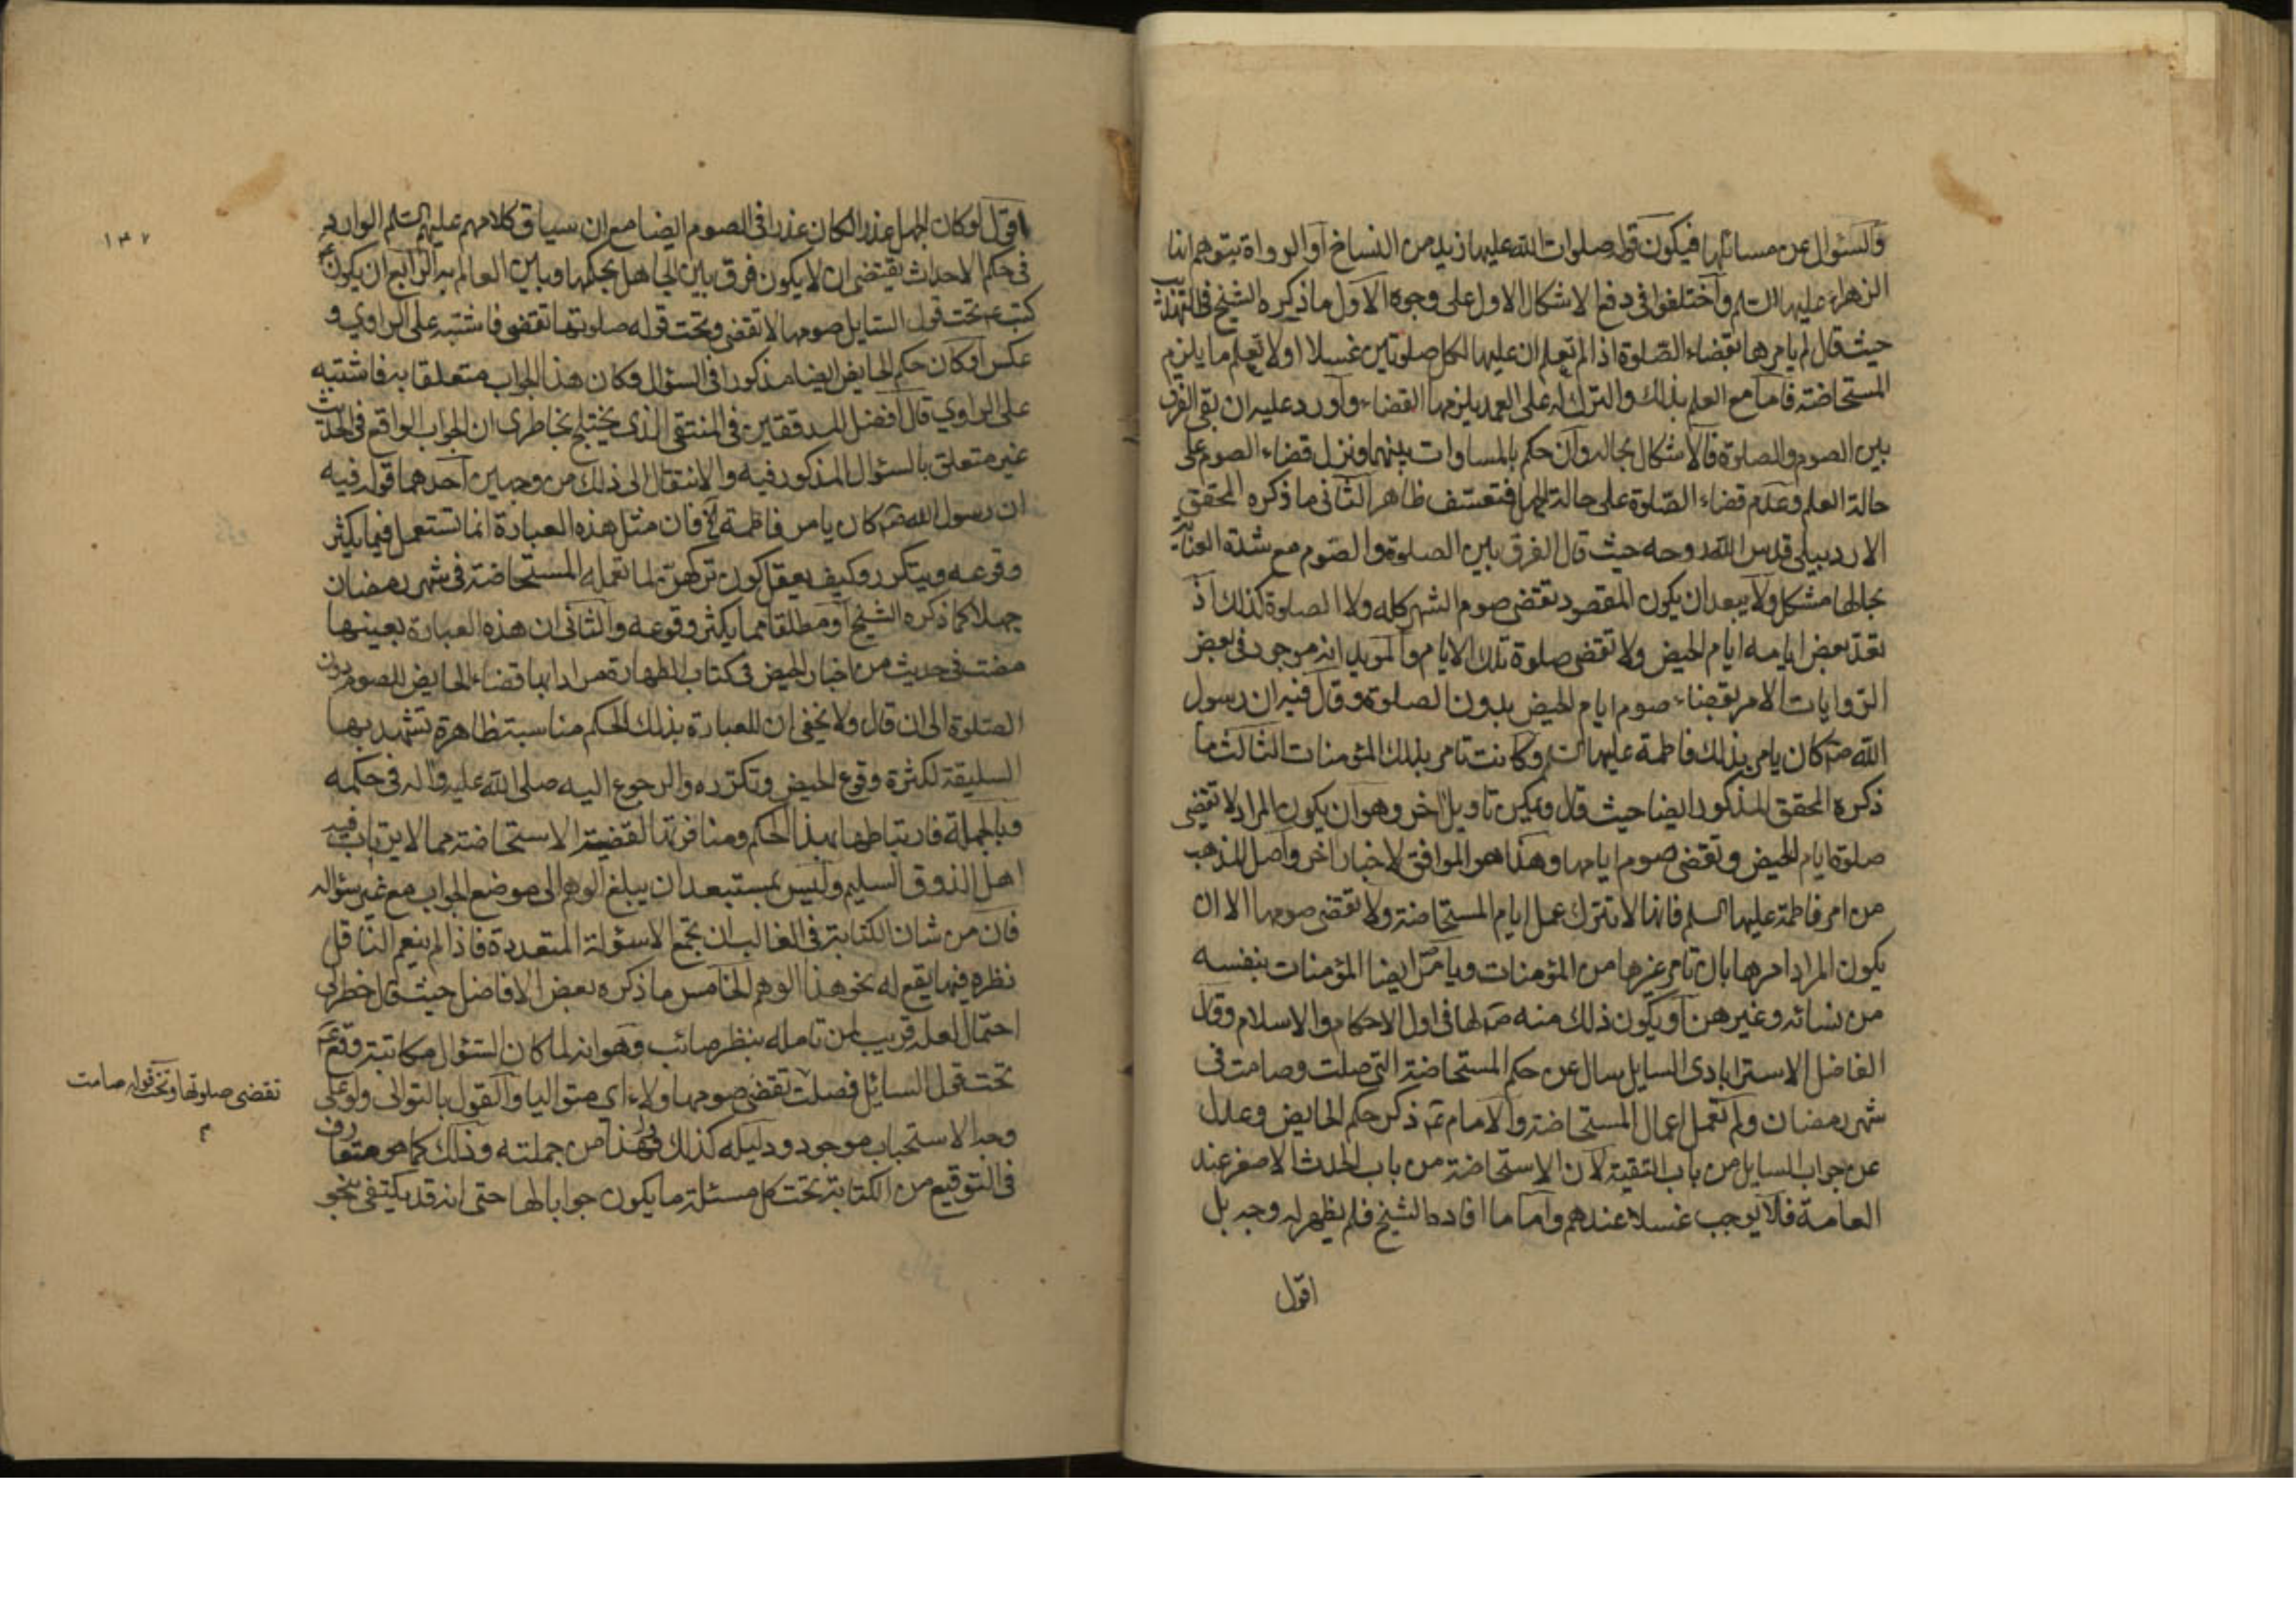 والسئوال عن مسائلها فيكون قوله صلوات الله عليها زيد من النساخ او الرواة بتوهم انها
الزهراء عليها السلم واختلفوا في دفع الاشكال الاول على وجوه الاول ما ذكره الشيخ في التهذيب
حيث قال لم يامرها بقضاء الصلوة اذا لم تعلم ان عليها لكل صلوتين غسلا او لا تعلم ما يلزم
المستحاضة فاما مع العلم بذلك والترك له على العمد يلزمها القضاء واورد عليه ان بقي الفرق
بين الصوم والصلوة فالاشكال بحاله وان حكم بالمساوات بينهما ونزل قضاء الصوم على
حالة العلم وعدم قضاء الصلوة على حالة الجهل فتعسف ظاهر الثاني ما ذكره المحقق
الاردبيلي قدس الله روحه حيث قال الفرق بين الصلوة والصوم مع شدة العناية
بحالها مشكل ولا يبعد ان يكون المقصود تقضي صوم الشهر كله ولا الصلوة كذلك اذ
تعد بعض ايامه ايام الحيض ولا تقضي صلوة تلك الايام والمويد انه موجود في بعض
الروايات الامر بقضاء صوم ايام الحيض بدون الصلوة وقال فيه ان رسول
الله ص كان يامر بذلك فاطمة عليها السلم وكانت تامر بذلك المؤمنات الثالث ما
ذكره المحقق المذكور ايضا حيث قال ويمكن تاويل اخر وهو ان يكون المراد لا تقضي
صلوة ايام الحيض وتقضي صوم ايامها وهذا هو الموافق لاخبار اخر واصل المذهب
من امر فاطمة عليها السلم فانها لا تترك عمل ايام المستحاضة ولا تقضي صومها الا ان
يكون المراد امرها بان تامر غيرها من المؤمنات ويامر ص ايضا المؤمنات بنفسه
من نسائه وغيرهن او يكون ذلك منه ص لها في اول الاحكام والاسلام وقال
الفاضل الاسترابادي السايل سال عن حكم المستحاضة التي صلت وصامت في
شهر رمضان ولم تعمل اعمال المستحاضة والامام ع ذكر حكم الحايض وعدل
عن جواب السايل من باب التقية لان الاستحاضة من باب الحدث الاصغر عند
العامة فلا يوجب غسلا عندهم واما ما افاده الشيخ فلم يظهر له وجه بل
اقول
١٣٧
اقول لو كان الجهل عذرا لكان عذرا في الصوم ايضا مع ان سياق كلامهم عليهم السلم الوارد
في حكم الاحداث يقتضي ان لا يكون فرق بين الجاهل بحكمها وبين العالم به الرابع ان يكون
كتب ع تحت قول السايل صومها لا تقضي وتحت قوله صلوتها تقضي فاشتبه على الراوي و
عكس او كان حكم الحايض ايضا مذكورا في السؤال وكان هذا الجواب متعلقا به فاشتبه
على الراوي قال افضل المدققين في المنتقى الذي يختلج بخاطري ان الجواب الواقع في الحديث
غير متعلق بالسئوال المذكور فيه والانتقال الى ذلك من وجهين احدهما قوله فيه
ان رسول الله ص كان يامر فاطمة الخ فان مثل هذه العبارة انما تستعمل فيما يكثر
وقوعه ويتكرر وكيف يعقل كون تركهن لما تعمله المستحاضة في شهر رمضان
جهلا كما ذكره الشيخ او مطلقا مما يكثر وقوعه والثاني ان هذه العبارة بعينها
مضت في حديث من اخبار الحيض في كتاب الطهارة مرادا بها قضاء الحايض للصوم دون
الصلوة الى ان قال ولا يخفى ان للعبارة بذلك الحكم مناسبة ظاهرة تشهد بها
السليقة لكثرة وقوع الحيض وتكرره والرجوع اليه صلى الله عليه واله في حكمه
وبالجملة فارتباطها بهذا الحكم ومنافرتها لقضية الاستحاضة مما لا يرتاب فيه
اهل الذوق السليم وليس بمستبعد ان يبلغ الوهم الى موضع الجواب مع غير سؤاله
فان من شان الكتابة في الغالب ان تجمع الاسئولة المتعددة فاذا لم ينعم الناقل
نظره فيها يقع له نحو هذا الوهم الخامس ما ذكره بعض الافاضل حيث قال خطر لي
احتمال لعله قريب لمن تامله بنظر صائب وهو انه لما كان السئوال مكاتبة وقع ع
تحت قول السائل فصلت تقضي صومها ولاء اي متواليا والقول بالتوالي ولو على
تقضي صلوتها وتحت قوله صامت
وجه الاستحباب موجود ودليله كذلك فهذا من جملته وذلك كما هو متعارف
في التوقيع من الكتابة تحت كل مسئلة ما يكون جوابا لها حتى انه قد يكتفي بنحو